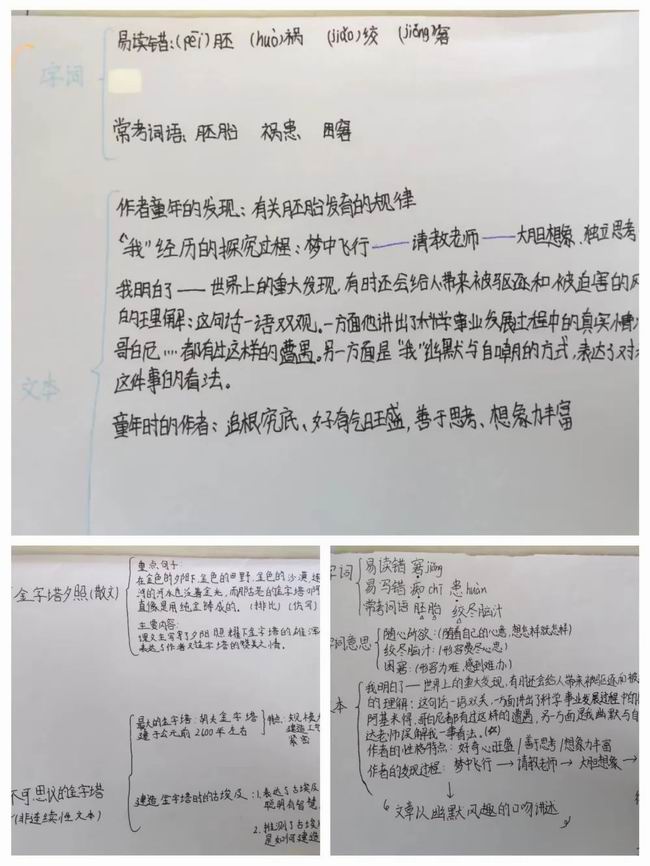 字词
易读错:(pēi)胚 (huò)祸 (jiǎo)绞 (jiǒng)窘
常考词语: 胚胎 祸患 困窘
文本
作者童年的发现: 有关胚胎发育的规律
"我"经历的探究过程: 梦中飞行——请教老师——大胆想象、独立思考
我明白了——世界上的重大发现,有时还会给人带来被驱逐和被迫害的风
的理解: 这句话一语双观。一方面他讲出了科学事业发展过程中的真实情
哥白尼....都有过这样的遭遇。另一方面是"我"幽默与自嘲的方式,表达了对
这件事的看法。
童年时的作者: 追根究底、好奇心旺盛,善于思考、想象力丰富
金字塔夕照(散文)
重点句子:
在金色的夕阳下,金色的田野,金色的沙漠,连
河的河水也泛着金光,而那古老的金字塔
直像是用纯金铸成的。(排比)
主要内容:
课文主要写了夕阳照耀下金字塔的雄浑
表达了作者对金字塔的赞美之情。
不可思议的金字塔
(非连续性文本)
最大的金字塔: 胡夫金字塔
建于公元前2600年左右
特点: 规模
建造工
紧密
建造金字塔时的古埃及:
1.表达了古埃及
聪明有智慧
2.推测了古埃
是如何建造
字词
易读错 窘jiǒng
易写错 痴chī 患huàn
常考词语 胚胎 绞尽脑汁
词词意思
随心所欲: (随着自己的心意,想怎样就怎样)
绞尽脑汁: (形容费尽心思)
困窘: (形容为难,感到难办)
本
我明白了——世界上的重大发现,有时还会给人带来被驱逐和被
的理解: 这句话一语双关,一方面讲出了科学事业发展过程中的
阿基米得、哥白尼都有过这样的遭遇,另一方面是我幽默与自
达老师误解我一事看法。
作者的性格特点: 好奇心旺盛/善于思考/想象力丰富
作者的发现过程: 梦中飞行→请教老师→大胆想象→
文章以幽默风趣的口吻讲述